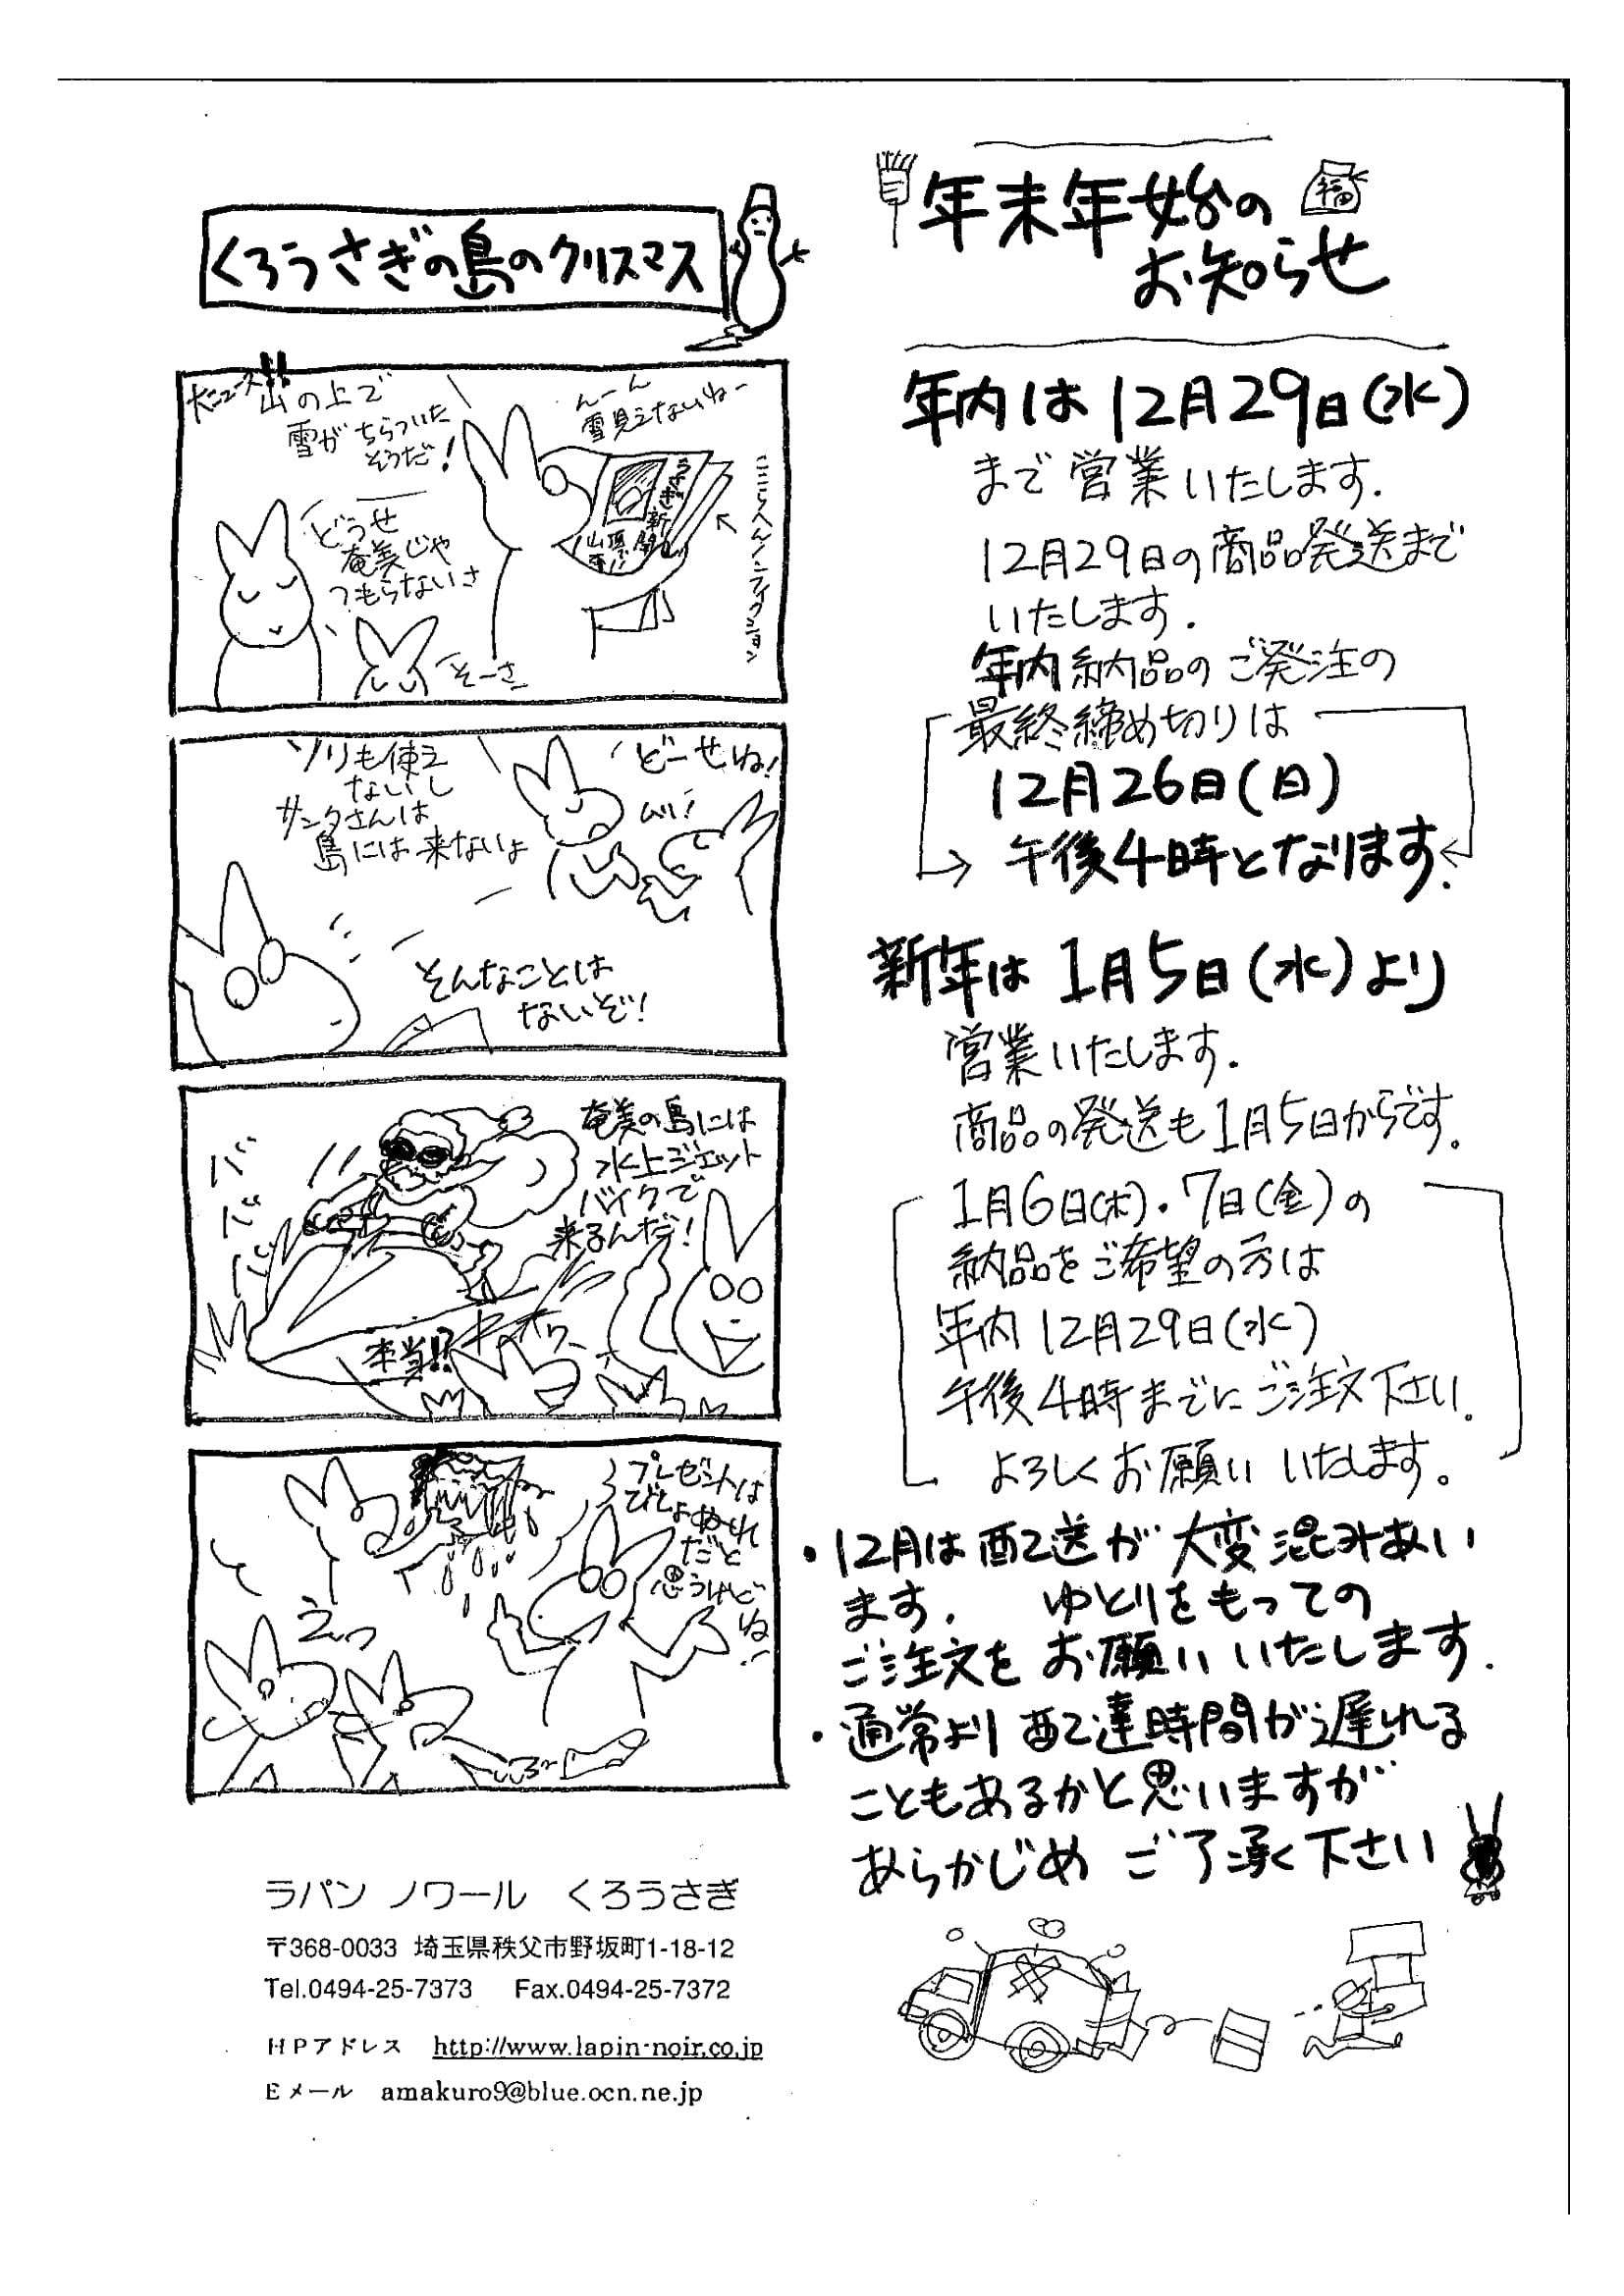 年末年始の
お知らせ
福
年内は12月29日(水)
まで営業いたします.
12月29日の商品発送まで
いたします.
年内納品のご発注の
最終締め切りは
12月26日(日)
午後4時となります.
新年は1月5日(水)より
営業いたします.
商品の発送も1月5日からです.
1月6日(木)・7日(金)の
納品をご希望の方は
年内12月29日(水)
午後4時までにご注文下さい.
よろしくお願いいたします。
・12月は配送が大変混みあい
ます. ゆとりをもっての
ご注文をお願いいたします.
・通常より配達時間が遅れる
こともあるかと思いますが
あらかじめ ご了承く下さい
くろうさぎの島のクリスマス
大ニュース!!
山の上で
雪がちらついた
そうだ!
んーん
雪見えないねー
うさぎ新聞
ここらへんノンフィクション
どうせ
奄美じゃ
つもらないさ
そーさ
どーせね!
ソリも使え
ないし
サンタさんは
島には来ないよ
そんなことは
ないぞ!
奄美の島には
水上ジェット
バイクで
来るんだぞ!
ババババ
本当!?
プレゼントは
びしょぬれ
だと
思うけど
ね…
えっ
ラパン ノワール くろうさぎ
〒368-0033 埼玉県秩父市野坂町1-18-12
Tel.0494-25-7373 Fax.0494-25-7372
HPアドレス http://www.lapin-noir.co.jp
Eメール amakuro9@blue.ocn.ne.jp